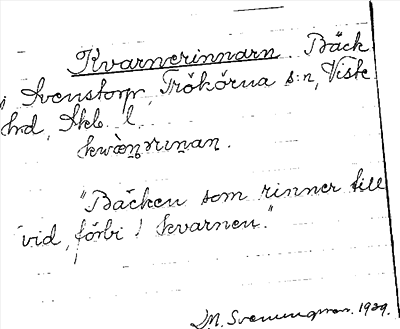 Kvarnerinnarn. Bäck
i Svenstorp, Trökörna s:n, Viste
hrd, Skb. l.
kwàṇərınan.
"Bäcken som rinner till
vid, förbi / kvarnen."
D.M. Svenungsson. 1929.